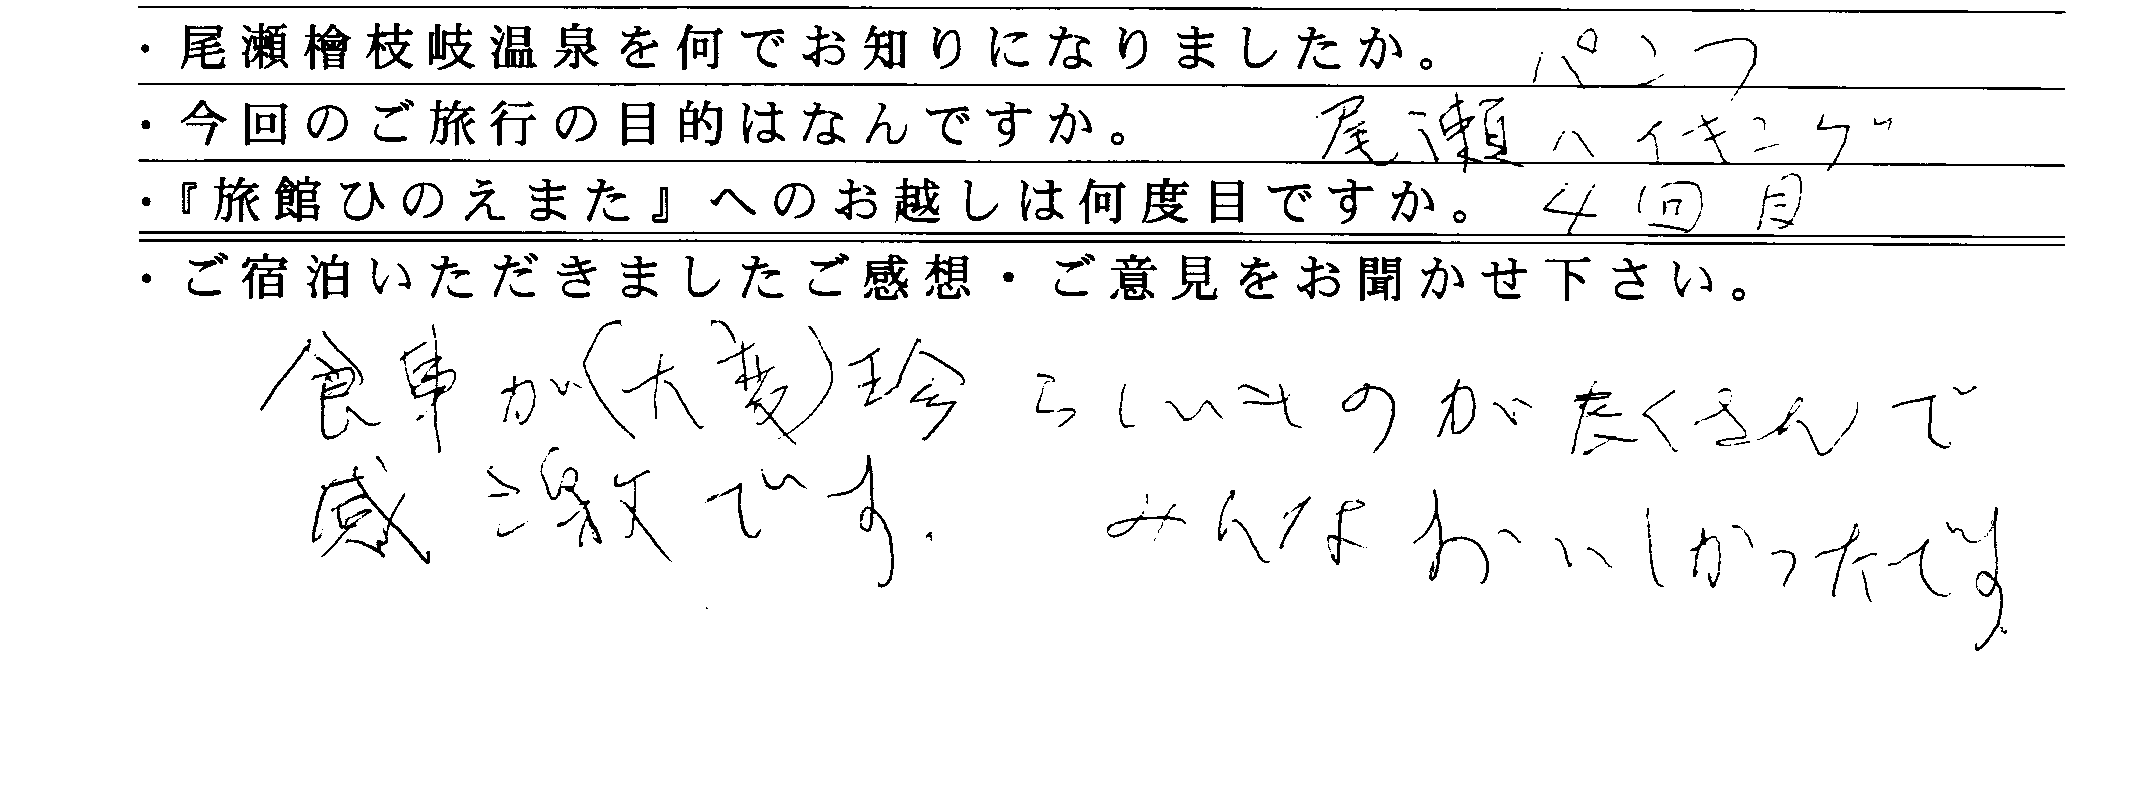 ・尾瀬檜枝岐温泉を何でお知りになりましたか。 パンフ
・今回のご旅行の目的はなんですか。 尾瀬ハイキング
・『旅館ひのえまた』へのお越しは何度目ですか。 4回目
・ご宿泊いただきましたご感想・ご意見をお聞かせ下さい。
食事が(大変)珍らしいものがたくさんで
感激です. みんなおいしかったです.